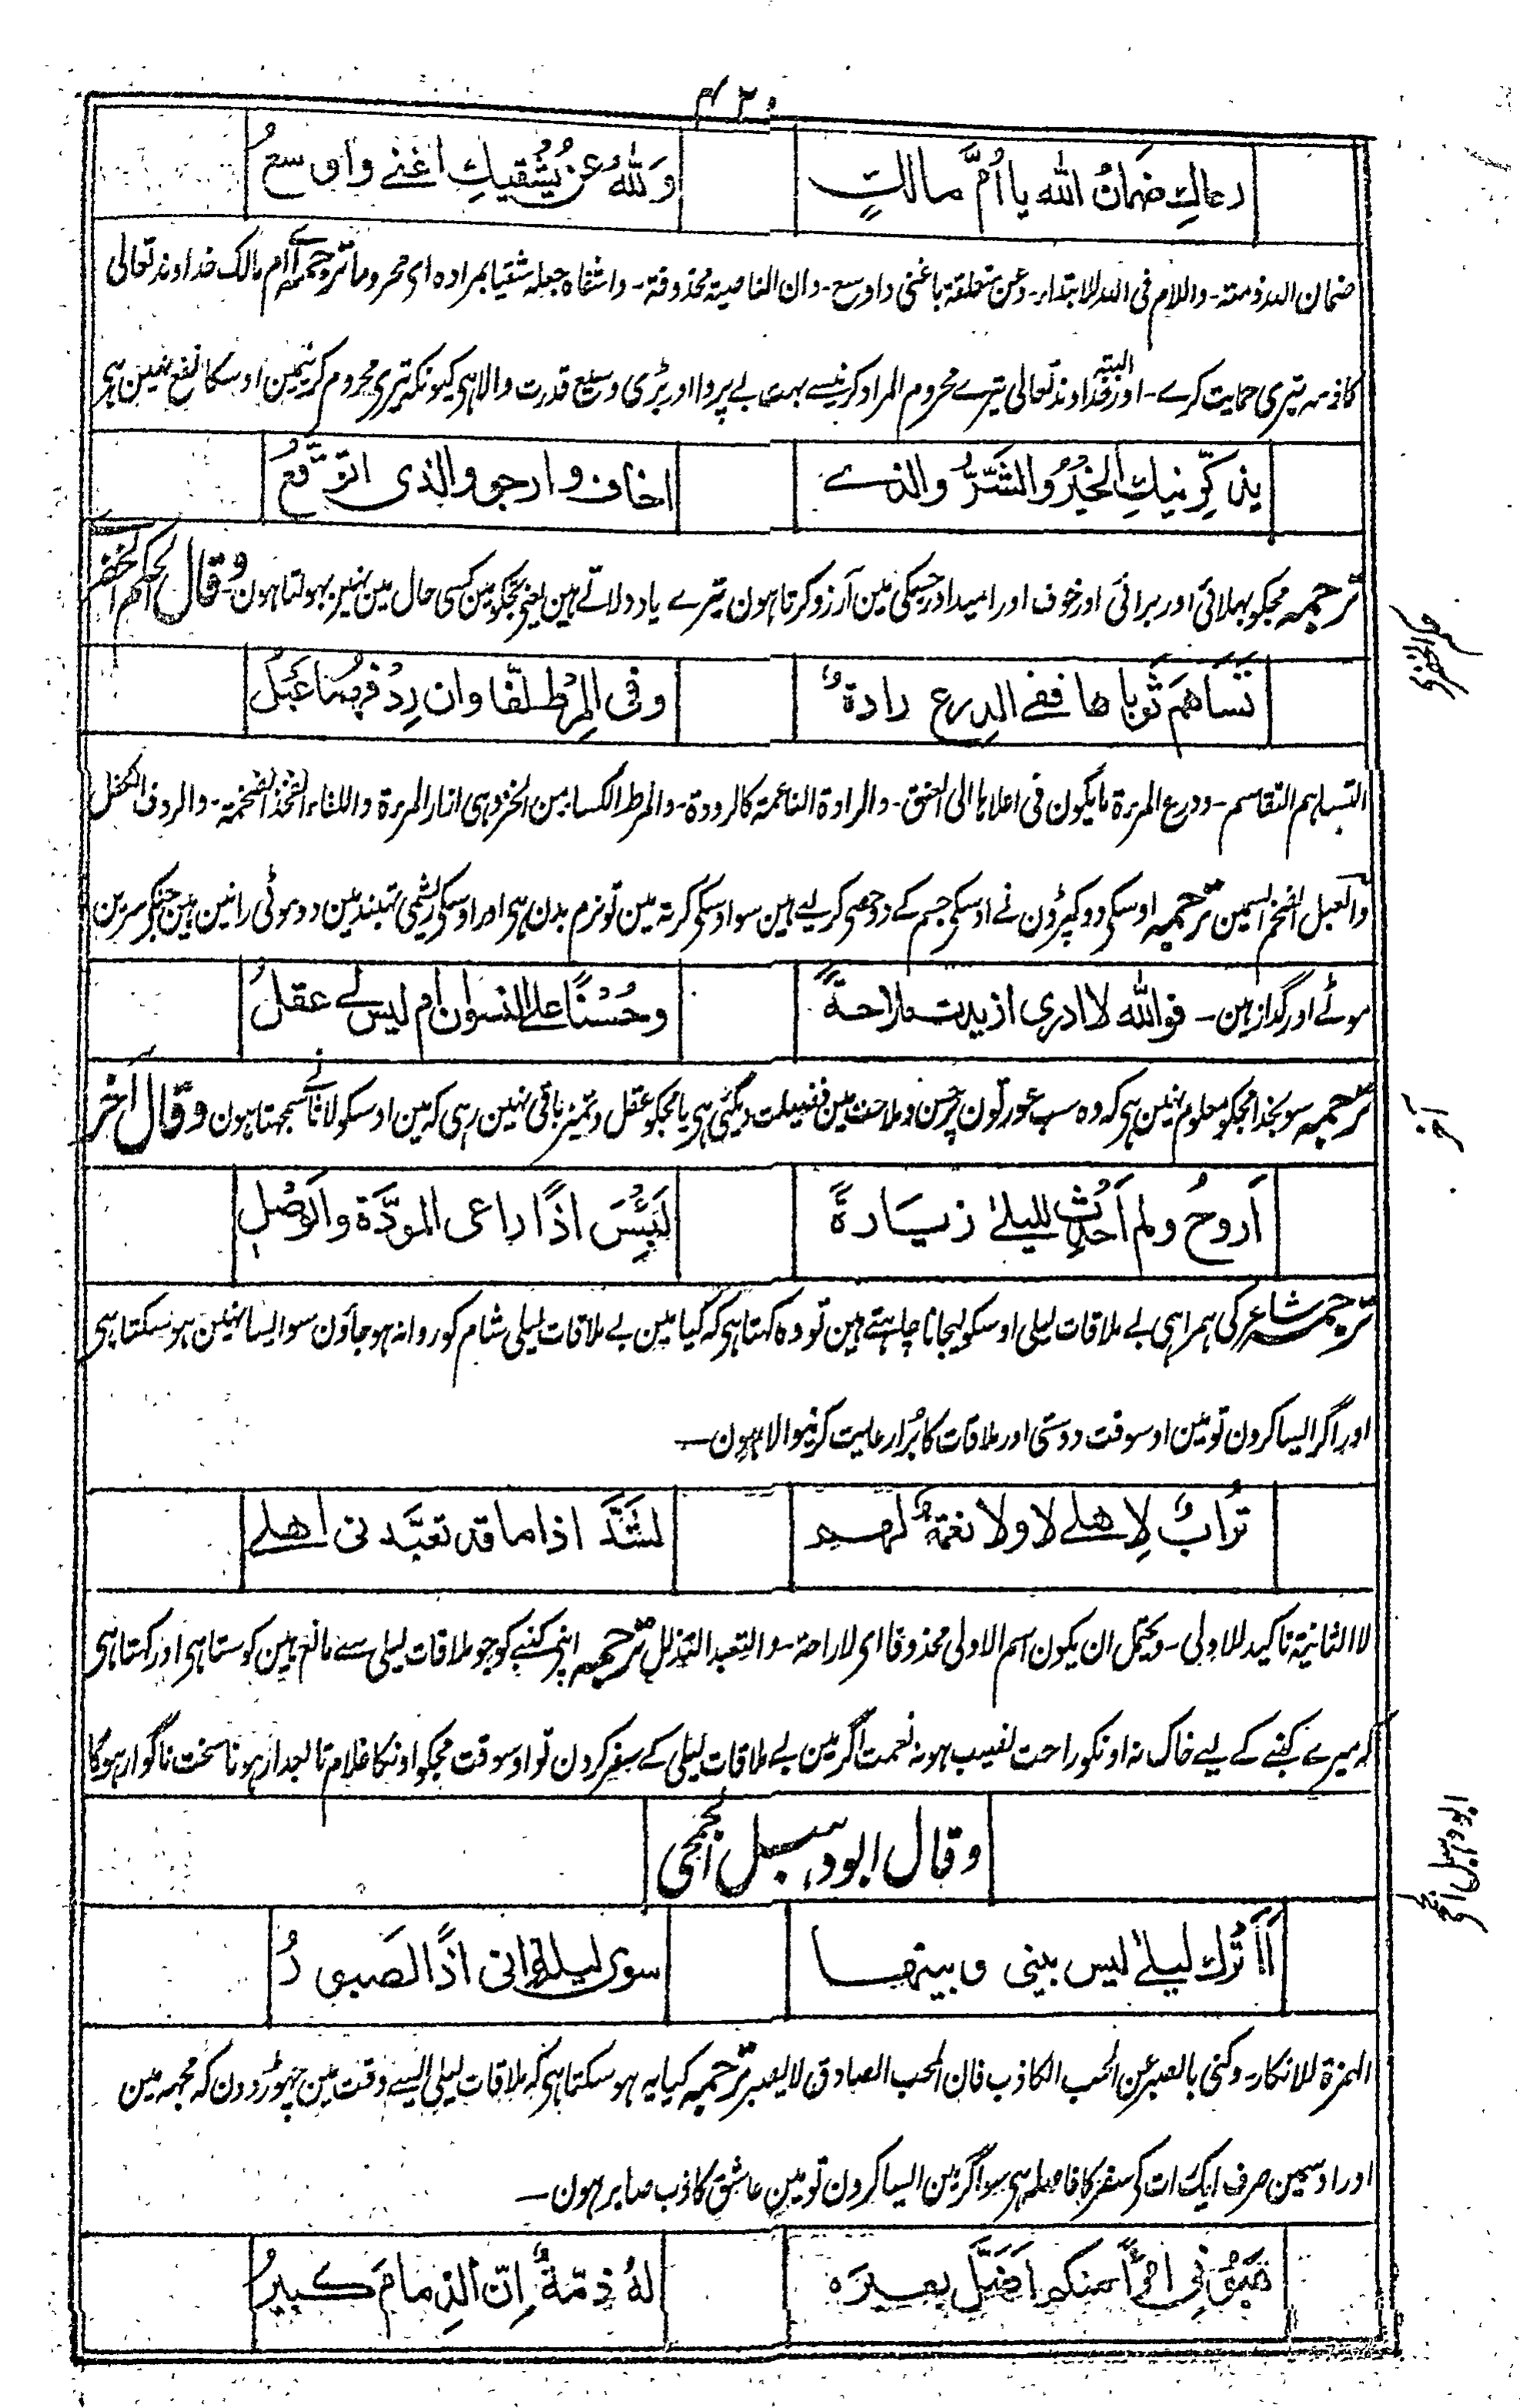 ۴۲۰
رعاكِ ضمانُ الله يا اُمَّ مالكٍ
وَللهُ عن يُشْقيكِ اغنے واوسعُ
ضمان اللہ ذمتہ۔ واللام فی اللہ للابتداء۔ وعن متعلقۃ باغنی واوسع۔ وان الناصبۃ محذوفۃ۔ واشقاہ جعلہ شقیا بمرادہ ای محروما ترجمہ اے ام مالک خداوند تعالی
کا ذمہ تیری حمایت کرے۔ اور البتہ خداوند تعالی تیرے محروم المراد کرنیسے بہت بے پروا اور بڑی وسیع قدرت والا ہی کیونکہ تیری محروم کرنیمین اوسکا نفع نہین ہی
يذكّرنيكِ الخيرُ والشّرُّ والذے
اخاف وارجو والذی اتوقّعُ
ترجمہ مجکو بہلائی اور برائی اور خوف اور امید اور جسکی مین آرزو کرتا ہون تیرے یاد دلاتے ہین یعنی تجکو مین کسی حال مین نہین بہولتا ہون وقال الحکم الخضری
تَسَاهَمَ ثَوباها ففے الدِرع رادةٌ
وفی المِرْط لفّا وان رِدْفهما عَبْلُ
التساہم التقاسم۔ ودرع المرءۃ ما یکون فی اعلاہا الی العنق۔ والرادۃ الناعمۃ کالرودۃ۔ والمرط الکساء من الخز وہی ازار المرءۃ واللفاء الفخذ الضخمۃ۔ والردف الکفل
والعبل الضخم السمین ترجمہ اوسکی دو کپڑون نے اوسکی جسم کے دو حصی کر لیے ہین سو اوسکی کرتہ مین تو نرم بدن ہی اور اوسکی ریشمی تہبند مین دو موٹی رانین ہین جنکی سرین
موٹے اور گداز ہین۔ فوالله لا ادری ازيدت ملاحةً
وحُسْنًا علے النسوان ام ليس لے عقلُ
ترجمہ سو بخدا مجکو معلوم نہین ہی کہ وہ سب عورتون پر حسن و ملاحت مین فضیلت دیگئی ہی یا مجکو عقل و تمیز باقی نہین رہی کہ مین اوسکو لاثانی سمجہتا ہون وقال آخر
اَروحُ ولم اُحْدِث لليلےٰ زيارةً
لَبِئْسَ اذًا راعی المودَّة والوَصْلِ
ترجمہ شاعر کی ہمراہی بے ملاقات لیلی اوسکو لیجانا چاہتے ہین تو وہ کہتا ہی کہ کیا مین بے ملاقات لیلی شام کو روانہ ہو جاؤن سو ایسا نہین ہو سکتا ہی
اور اگر ایسا کرون تو مین اوسوقت دوستی اور ملاقات کا بُرا رعایت کرنیوالا ہون۔
تُرابٌ لِاهلے لا ولا نعمةٌ لهم
لشَدَّ اذا ما قد تعبَّدنی اهلے
لا الثانیۃ تاکید للاولی۔ ویحتمل ان یکون اسم الاولی محذوفا ای لا راحۃ۔ والتعبد التذلل ترجمہ اپنی کنبے کو جو ملاقات لیلی سے مانع ہین کوستا ہی اور کہتا ہی
کہ میرے کنبے کے لیے خاک نہ اونکو راحت نصیب ہو نہ نعمت اگر مین بے ملاقات لیلی کے سفر کرون تو اوسوقت مجکو اونکا غلام تابعدار ہونا سخت ناگوار ہوگا
وقال ابو دہبل الجمحی
اَاَتْرُك ليلےٰ ليس بينی وبينها
سوی ليلةٍ انی اذًا لصبورُ
الہمزۃ للانکار۔ وکنی بالصبر عن المحب الکاذب فان المحب الصادق لا یصبر ترجمہ کیا یہ ہو سکتا ہی کہ ملاقات لیلی ایسے وقت مین چہوڑ دون کہ مجہہ مین
اور اوسمین صرف ایک رات کی سفر کا فاصلہ ہی سو اگر مین ایسا کرون تو مین عاشق کاذب صابر ہون۔
هَبُونی امرأً منكم اَضَلَّ بعيرَه
لهُ ذمّةٌ اِنّ الذِمامَ كبيرُ
حکم الخضری
آخر
ابو دہبل الجمحی